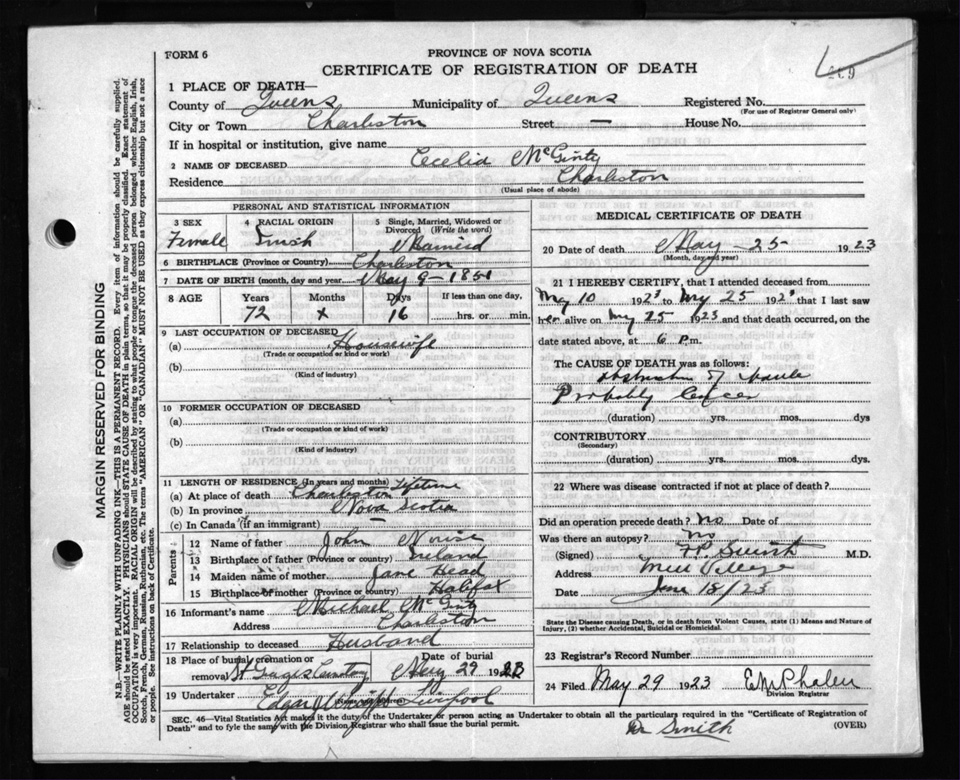 FORM 6
PROVINCE OF NOVA SCOTIA
CERTIFICATE OF REGISTRATION OF DEATH
1 PLACE OF DEATH—
County of Queens Municipality of Queens Registered No.
(For use of Registrar General only)
City or Town Charleston Street — House No.
If in hospital or institution, give name
2 NAME OF DECEASED Cecelia McGinty
Residence Charleston
(Usual place of abode)
PERSONAL AND STATISTICAL INFORMATION
3 SEX 4 RACIAL ORIGIN 5 Single, Married, Widowed or Divorced (Write the word)
Female Irish Married
6 BIRTHPLACE (Province or Country) Charleston
7 DATE OF BIRTH (month, day and year) May 9 - 1851
8 AGE Years Months Days If less than one day,
72 x 16 hrs. or min.
9 LAST OCCUPATION OF DECEASED
(a) Housewife
(Trade or occupation or kind or work)
(b)
(Kind of industry)
10 FORMER OCCUPATION OF DECEASED
(a)
(Trade or occupation or kind of work)
(b)
(Kind of industry)
11 LENGTH OF RESIDENCE (In years and months) Lifetime
(a) At place of death Charleston
(b) In province Nova Scotia
(c) In Canada (if an immigrant) —
Parents
12 Name of father John
13 Birthplace of father (Province or country) Ireland
14 Maiden name of mother Jane Head
15 Birthplace of mother (Province or country) Halifax
16 Informant's name Michael McGinty
Address Charleston
17 Relationship to deceased Husband
18 Place of burial, cremation or removal Date of burial
Cemetery 27 1923
19 Undertaker Edgar Liverpool
MEDICAL CERTIFICATE OF DEATH
20 Date of death May - 25 - 1923
(Month, day and year)
21 I HEREBY CERTIFY, that I attended deceased from
May 10 1923 to May 25 1923 that I last saw
her alive on May 25 1923 and that death occurred, on
date stated above, at 6 P.m.
The CAUSE OF DEATH was as follows:
Obstruction of
Probably Cancer
(duration) yrs. mos. dys
CONTRIBUTORY
(Secondary)
(duration) yrs. mos. dys.
22 Where was disease contracted if not at place of death?
Did an operation precede death? No Date of
Was there an autopsy? No
(Signed) F.P. Smith M.D.
Address Mill Village
Date June 18/23
State the Disease causing Death, or in death from Violent Causes, state (1) Means and Nature of
Injury, (2) whether Accidental, Suicidal or Homicidal.
23 Registrar's Record Number
24 Filed May 29 1923 E.M. Phalen
Division Registrar
SEC. 46—Vital Statistics Act makes it the duty of the Undertaker or person acting as Undertaker to obtain all the particulars required in the "Certificate of Registration of
Death" and to fyle the same with the Division Registrar who shall issue the burial permit.
(OVER)
Dr Smith
MARGIN RESERVED FOR BINDING
N.B.—WRITE PLAINLY WITH UNFADING INK—THIS IS A PERMANENT RECORD. Every item of information should be carefully supplied.
AGE should be stated EXACTLY. PHYSICIANS should STATE CAUSE OF DEATH in plain terms, so that it may be properly classified. Exact statement of
OCCUPATION is very important. RACIAL ORIGIN will be described by stating to what people or tongue the deceased person belonged whether English, Irish,
Scotch, French, German, Russian, Ruthenian, etc. The terms "AMERICAN" OR "CANADIAN" MUST NOT BE USED as they express citizenship but not a race
or people. See instructions on back of Certificate.